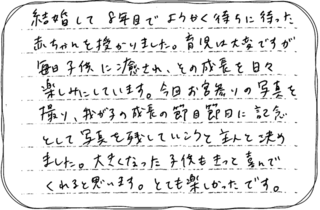 結婚して8年目でようやく待ちに待った
赤ちゃんを授かりました。育児は大変ですが
毎日子供に癒され、その成長を日々
楽しみにしています。今回お宮参りの写真を
撮り、我が子の成長の節目節目に記念
として写真を残していこうと主人と決め
ました。大きくなった子供もきっと喜んで
くれると思います。とても楽しかったです。